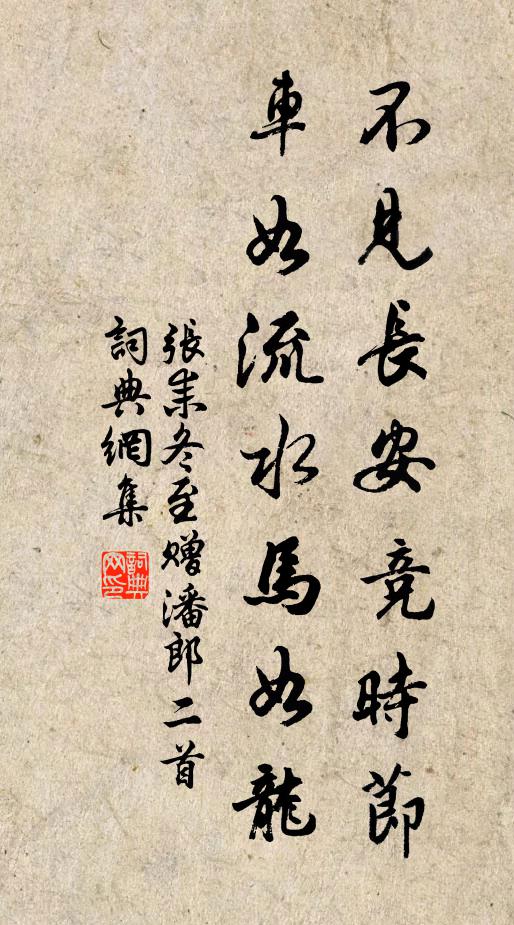 不見長安競時節
車如流水馬如龍
張耒冬至贈潘郎二首
詞典網集
詞典網印